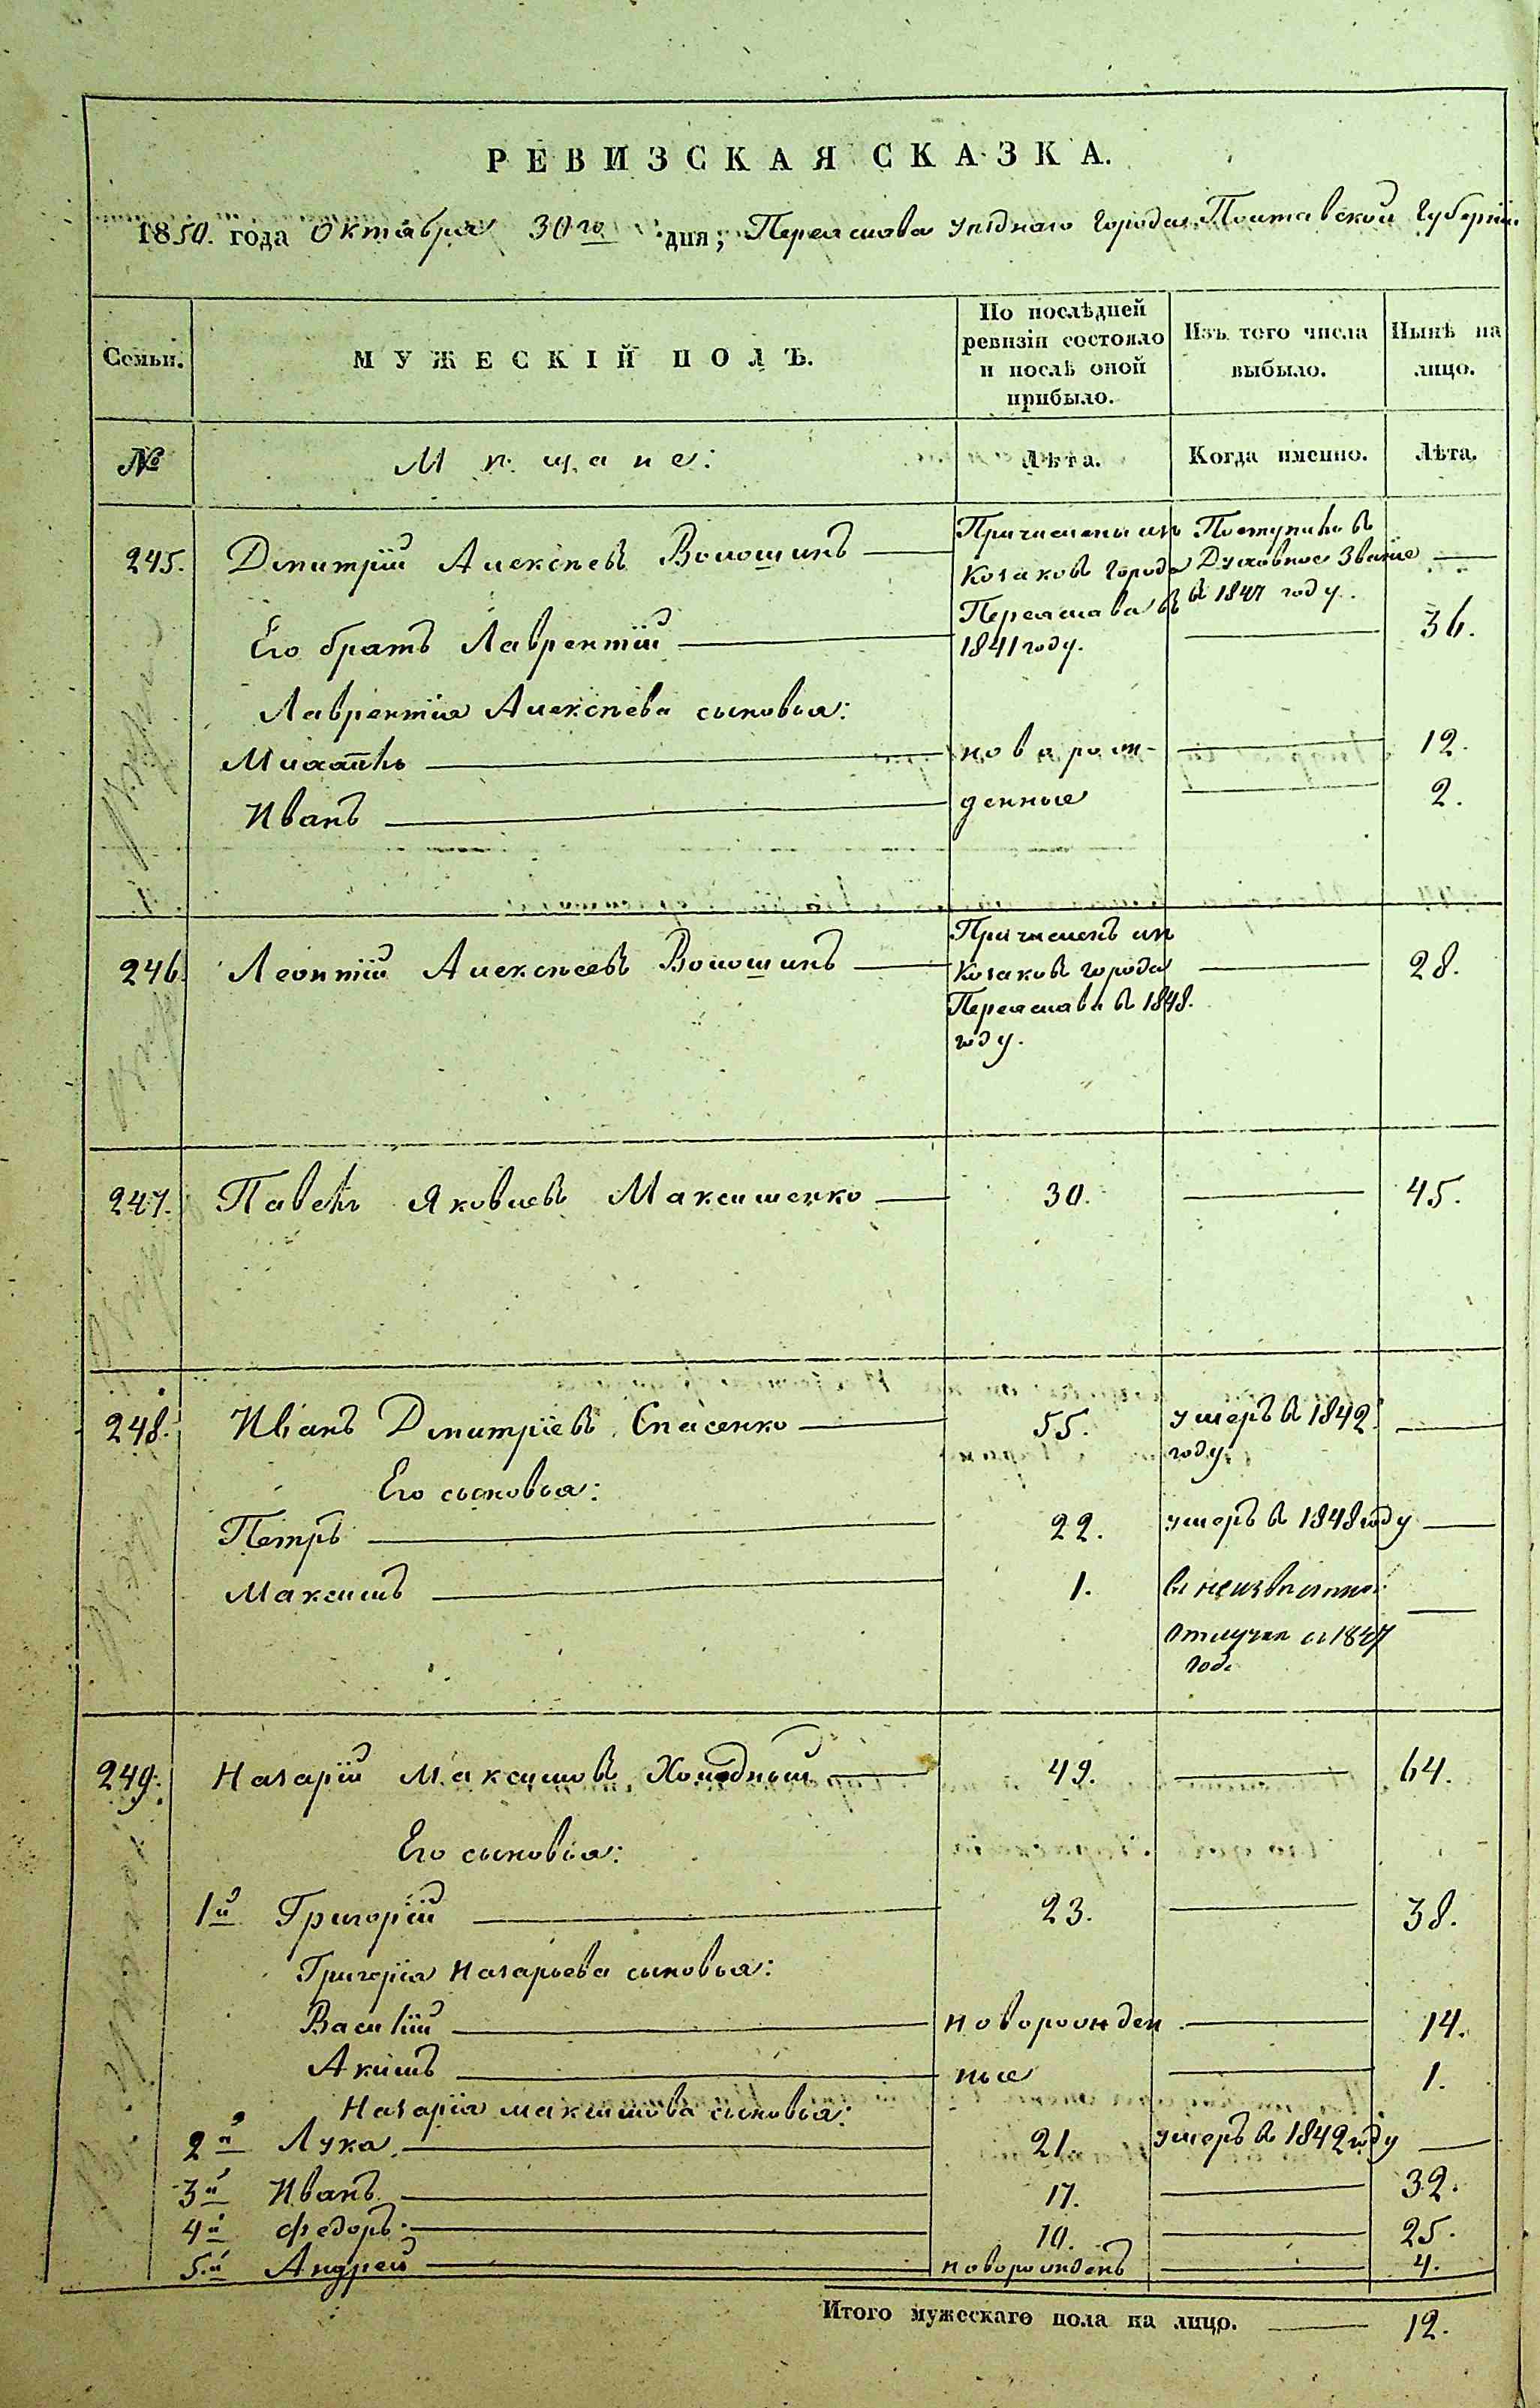 РЕВИЗСКАЯ СКАЗКА.
1850. года Октября 30го дня; Переяслава уѣзднаго города Полтавской Губерніи.
Семьи. МУЖЕСКІЙ ПОЛЪ. По послѣдней ревизіи состояло и послѣ оной прибыло. Изъ того числа выбыло. Нынѣ на лицо.
№ Мѣщане: Лѣта. Когда именно. Лѣта.
245. Дмитрій Алексѣевъ Волошинъ — Причислены изъ Козаковъ города Переяслава въ 1841 году. Поступилъ въ Духовное Званіе въ 1847 году. —
Его братъ Лаврентій — — 36.
Лаврентія Алексѣева сыновья:
Михаилъ — новорож- — 12.
Иванъ — денные — 2.
246. Леонтій Алексѣевъ Волошинъ — Причисленъ изъ Козаковъ города Переяслава въ 1848. году. — 28.
247. Павелъ Яковлевъ Максименко — 30. — 45.
248. Иванъ Дмитріевъ Спасенко — 55. умеръ въ 1842. году. —
Его сыновья:
Петръ — 22. умеръ въ 1848 году —
Максимъ — 1. въ неизвѣстной отлучкѣ съ 1847 года —
249. Назарій Максимовъ Холодный — 49. — 64.
Его сыновья:
1й Григорій — 23. — 38.
Григорія Назарьева сыновья:
Василій — новорожден — 14.
Акимъ — ные — 1.
Назарія Максимова сыновья:
2й Лука — 21. умеръ въ 1842 году —
3й Иванъ — 17. — 32.
4й Федоръ — 10. — 25.
5й Андрей — новорожденъ — 4.
Итого мужескаго пола на лицо. — 12.